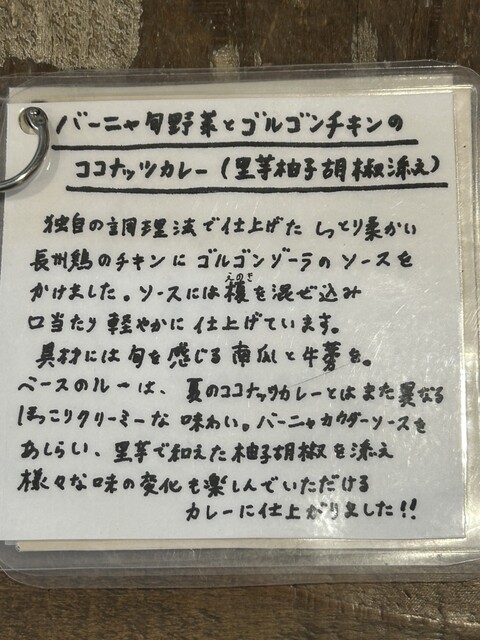 バーニャ旬野菜とゴルゴンチキンの
ココナッツカレー(里芋柚子胡椒添え)
独自の調理法で仕上げた しっとり柔かい
長州鶏のチキンに ゴルゴンゾーラの ソースを
かけました。ソースには榎を混ぜ込み
えのき
口当たり 軽やかに 仕上げています。
具材には 旬を 感じる 南瓜と牛蒡を。
ベースのルーは、夏のココナッツカレーとはまた異なる
ほっこりクリーミーな 味わい。バーニャカウダーソースを
あしらい、里芋で和えた 柚子胡椒を添え
様々な味の変化も楽しんでいただける
カレーに仕上がりました!!